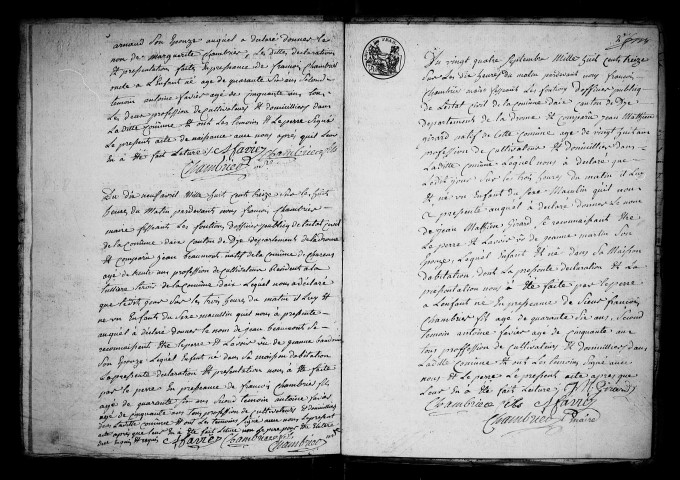 arnaud son Epouze auquel a déclaré donner le
non de marguerite chambrier, les dittes déclaration
et présentation faite en présance de françois chambrier
oncle a l'Enfant né agé de quarante six ans second
temoin antoine favier agé de cinquante un ans,
les deux profession de cultivateurs et domicilliers dans
la ditte comune et ont les temoin et le perre signé
le present acte de naisance avec nous après quil leur
en à été fait leture. A favier chambrier fils
Chambrier
Du dix neuf avril mille huit cents treize sur les huit
heures du matin pardevant nous françois chambrier
maire fesant les fontions d'officier publiq de letat civil
de la comune daix canton de Dye departement de la drome
est comparu jean beaumont natif de la comune de
agé de trente ans profession de cultivateur Résident a la
terroir de la comune daix Lequel nous a déclaré
que le dit jour sur les trois heures du matin il luy et
né un Enfant du sexe masculin quil nous à présente
auquel à déclaré donner le nom de jean beaumont se
reconnaisent être le perre et Lavoir eu de jeanne
son Epouze lequel Enfant né dans sa maison dabitation
La presente déclaration et présentation nous à été faite
par le perre en presance de françois chambrier fils
agé de quarante six ans second temoin antoine favier
agé de cinquante un ans tous profession de cultivateurs et domiciliers
dans Laditte comune et ont les temoins signé avec nous le present
acte après que leur en à été fait leture non le perre pour être illitéré
de ce enquis et requis A favier Chambrier fils
Chambrier
Du vingt quatre septembre Mille huit cents treize
sur les dix heures du matin pardevant nous françois
chambrier maire fesant les fontions d'officier publiq
de letat civil de la comune daix canton de Dye
departement de la drome et comparu jean Mathieu
Girard natif de cette comune agé de vingt huit ans
profession de cultivateur et domicillier dans
Laditte comune Lequel nous à déclaré que
Ledit jour sur les trois heures du matin il luy
et né un Enfant du sexe Masculin quil nous
a presenté auquel à déclaré donner le nom
de jean Mathieu Girard, se reconnaisant être
le perre et Lavoir eu de jeanne martin son
Epouze, Lequel Enfant né dans sa Maison
dabitation dont la presente déclaration et La
presentation nous à été faite par le perre
a Lenfant en presance de Sieur françois
Chambrier fils agé de quarante six ans, Second
temoin antoine favier agé de cinquante un
ans tous proffession de cultivateurs et domicilliers dans
Laditte comune et ont les temoins signé avec
nous et Le perre le présent acte après que
Leur en à été fait Leture. JM Girard
Chambrier fils A favier
Chambrier maire